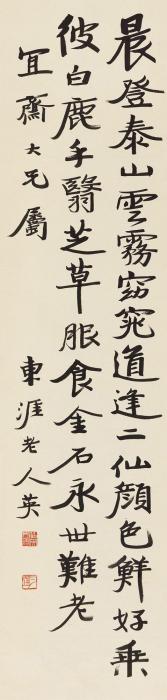 晨登泰山雲霧窈窕道逢二仙顏色鮮好乘
彼白鹿手翳芝草服食金石永世難老
宜齋大兄屬
東涯老人英